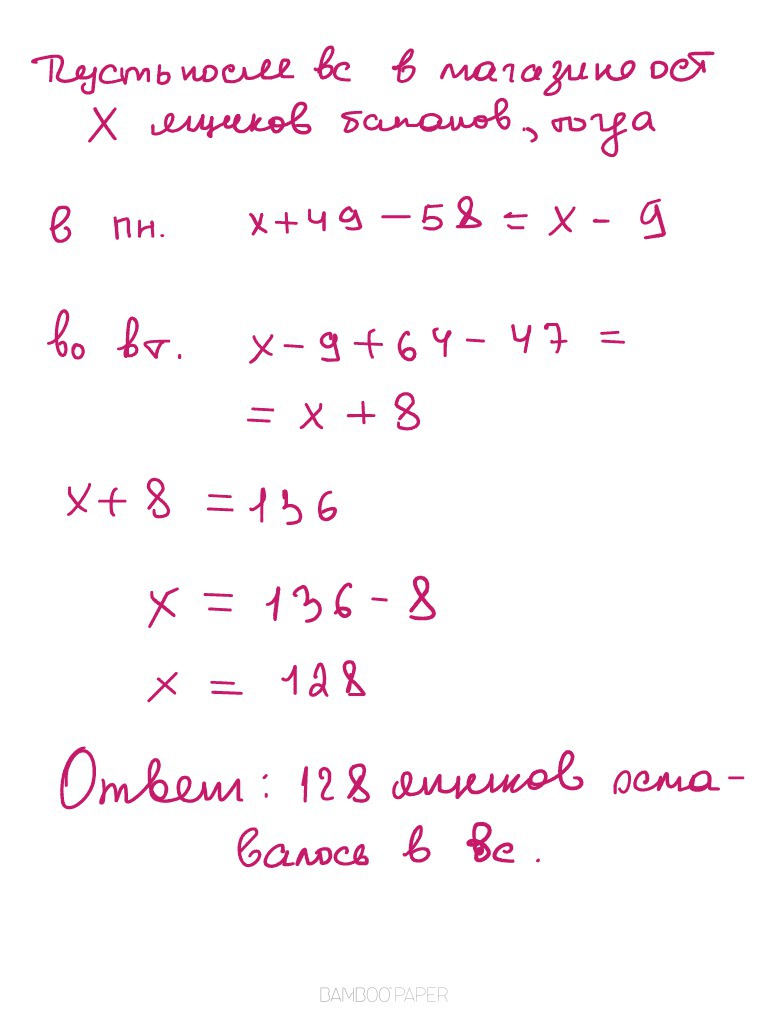 Пусть после вс в магазине ост
X ящиков бананов, тогда
в пн. x+49-58=x-9
во вт. x-9+64-47=
=x+8
x+8=136
x=136-8
x=128
Ответ: 128 ящиков оста-
валось в вс.
BAMBOO PAPER